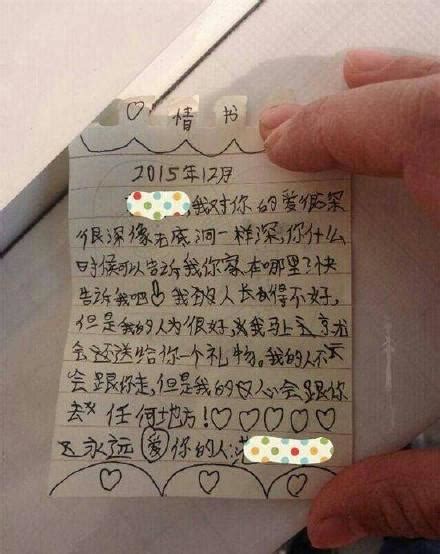 ♡情书
2015年12月
,我对你的爱很深
很深像无底洞一样深,你什么
时候可以告诉我你家在哪里?快
告诉我吧!我人长得不好,
但是我的人为很好,我马上
会还送给你一个礼物。我的人不
会跟你走,但是我的心会跟你
去任何地方!♡♡♡♡♡
永远爱你的人:范